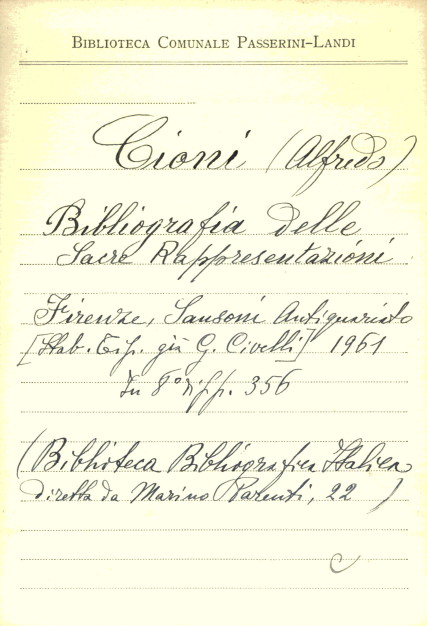 BIBLIOTECA COMUNALE PASSERINI-LANDI
Cioni (Alfredo)
Bibliografia delle
Sacre Rappresentazioni
Firenze, Sansoni Antiquariato
[Stab. Tip. già G. Civelli] 1961
In 8° pp. 356
(Biblioteca Bibliografica Italica
diretta da Marino Parenti, 22 )
C